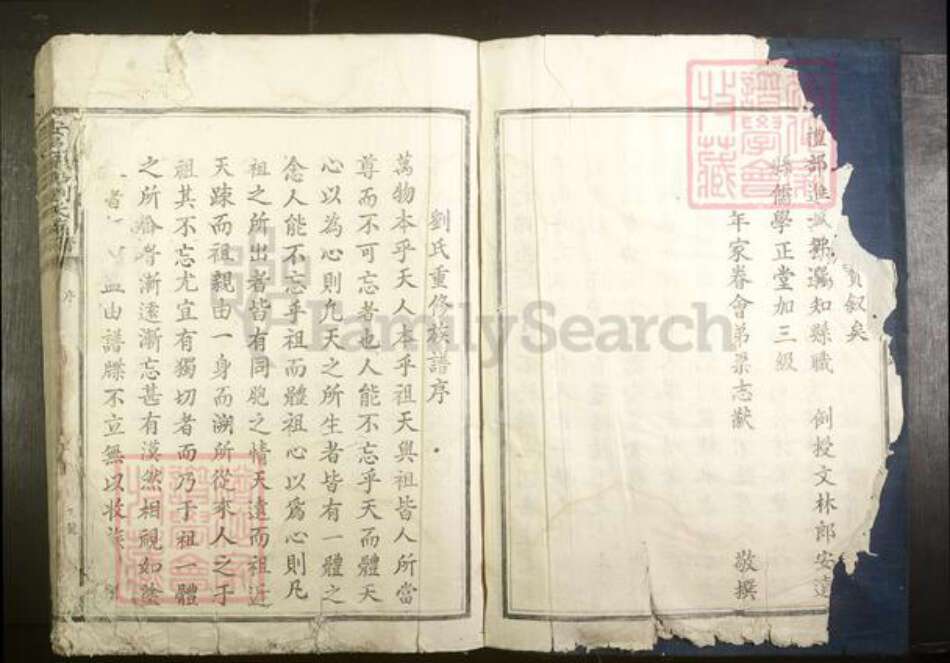 叙矣
禮部進 知縣職 例授文林郎安遠
儒學正堂加三級
年家眷會弟梁志猷 敬撰
劉氏重修族譜序
萬物本乎天人本乎祖天與祖皆人所當
尊而不可忘者也人能不忘乎天而體天
心以為心則凡天之所生者皆有一體之
念人能不忘乎祖而體祖心以為心則凡
祖之所出者皆有同胞之情天遠而祖近
天踈而祖親由一身而溯所從來人之于
祖其不忘尤宜有獨切者而乃于祖一體
之所 漸遠漸忘甚有漠然相視如塗
者 由譜牒不立無以收族
序
FamilySearch